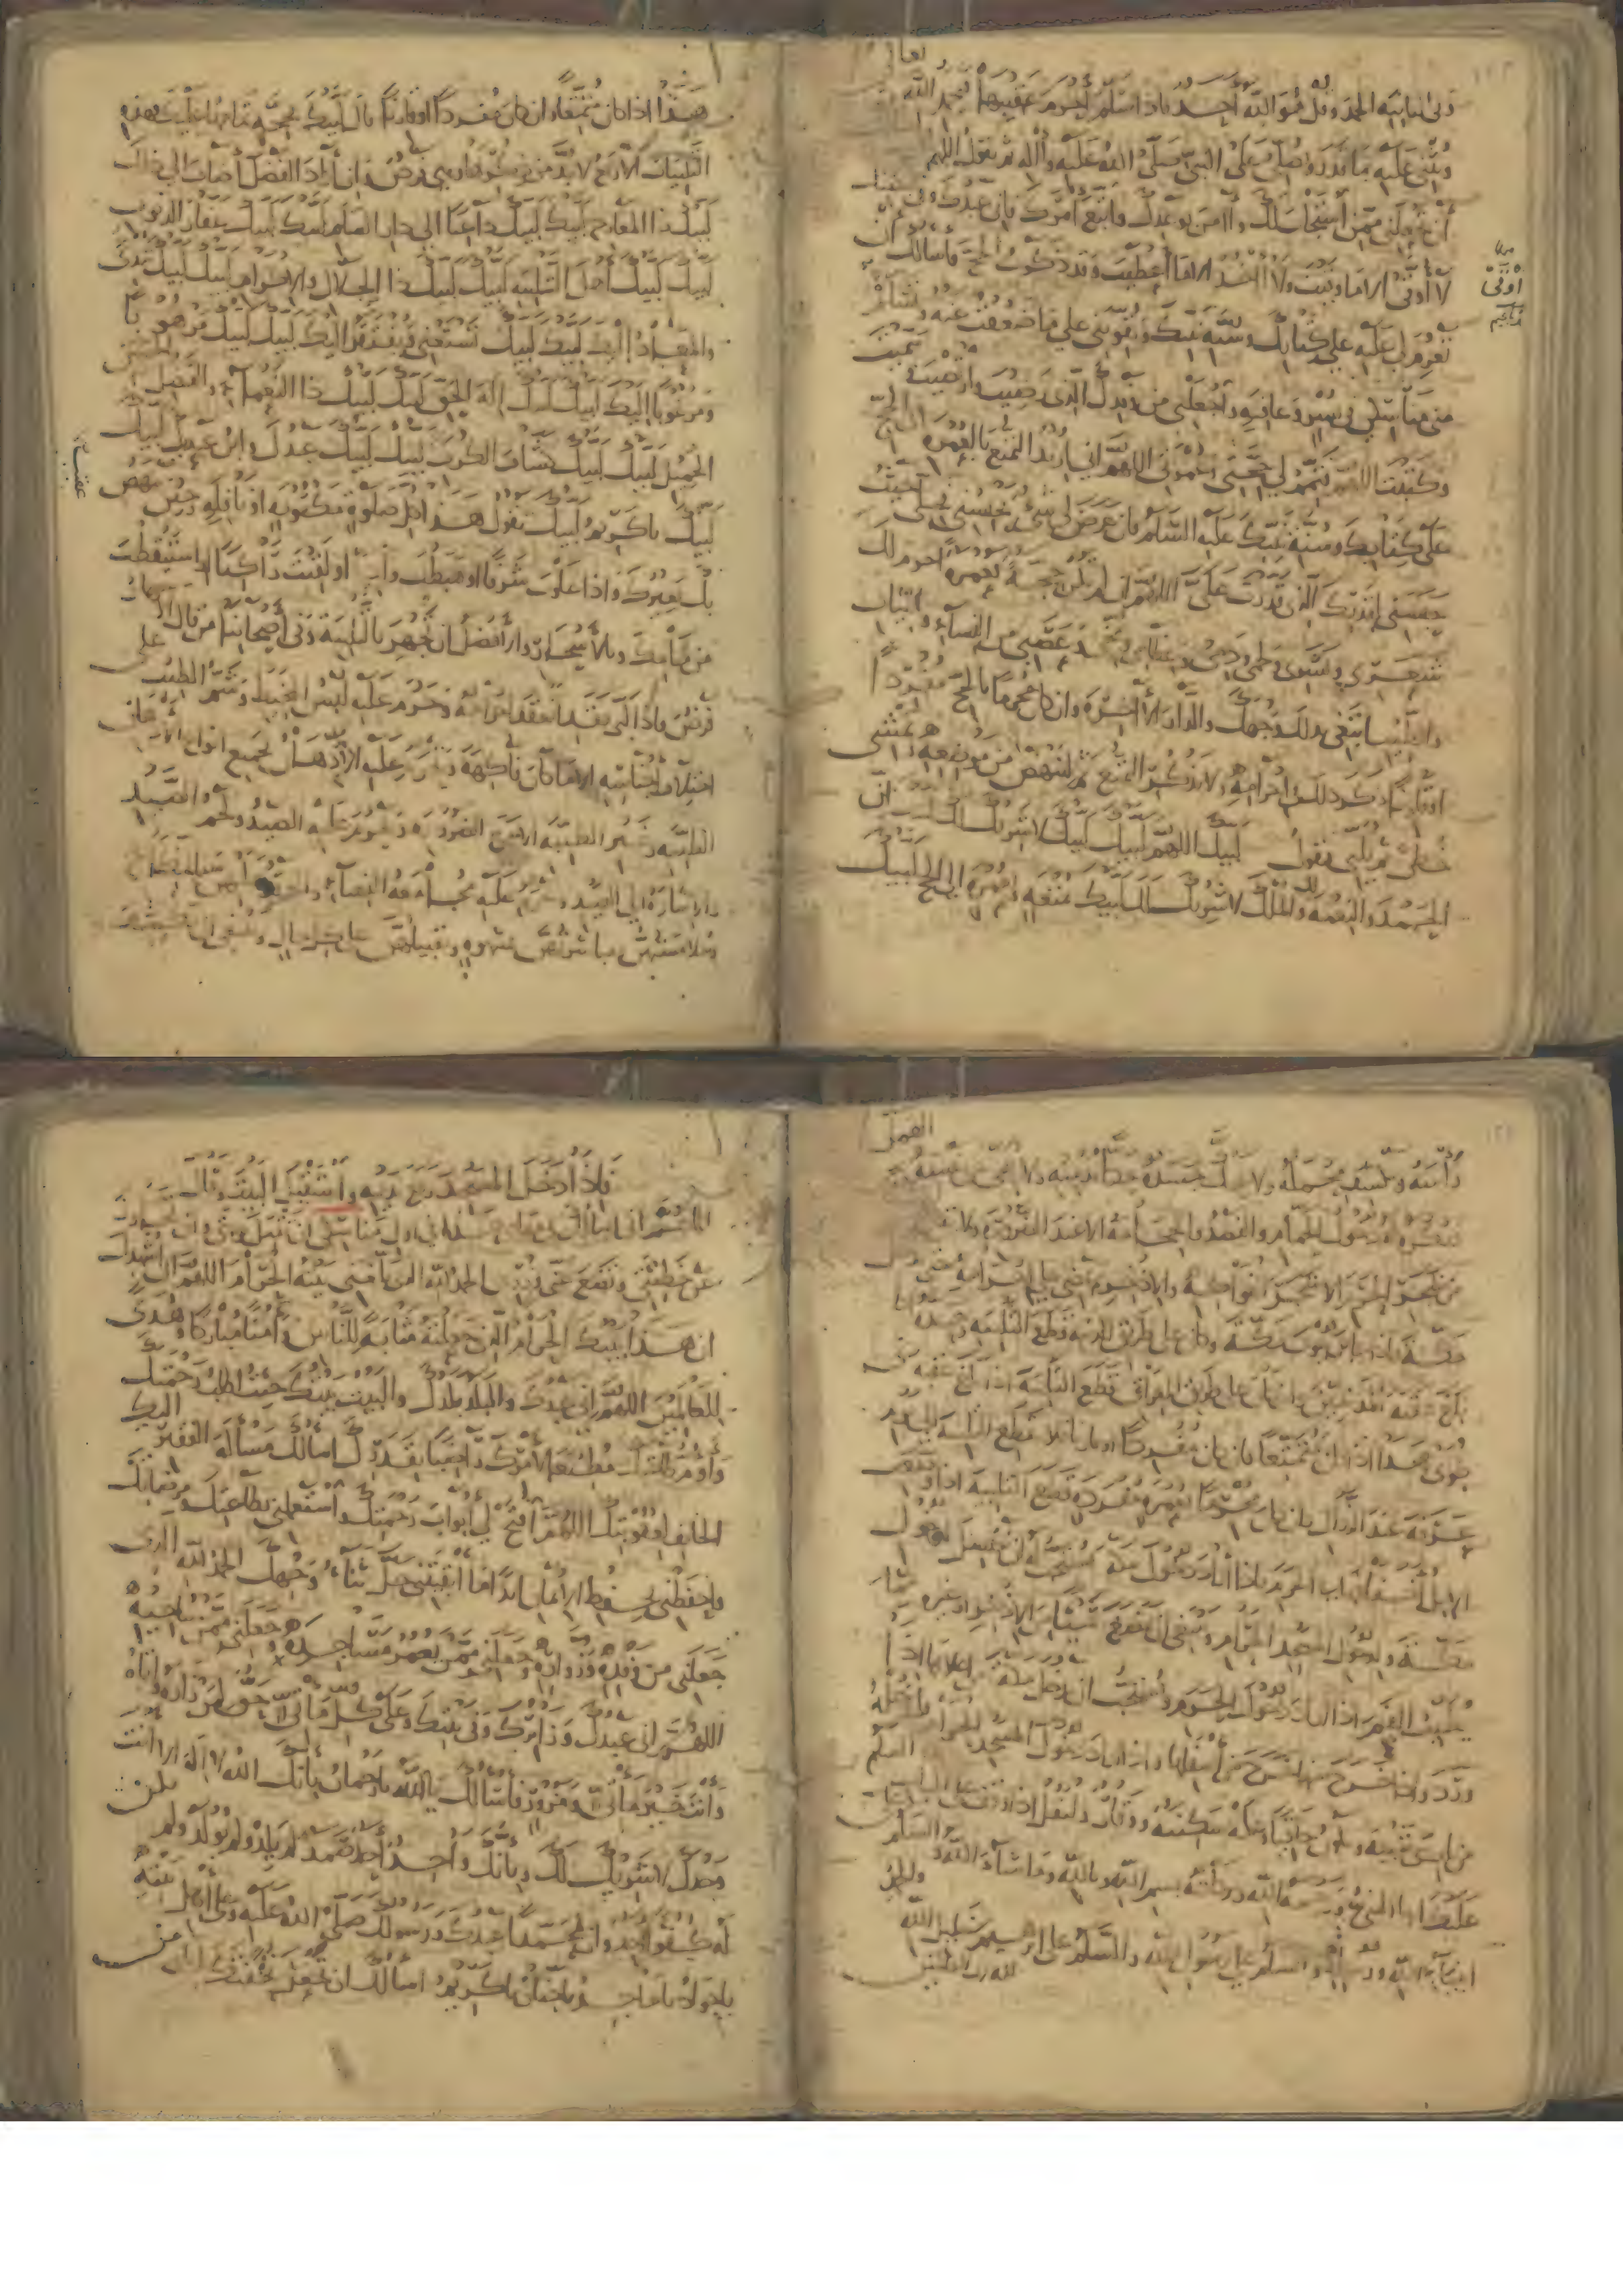 وفي الثانية الحمد وقل هو الله أحد فاذا سلم أحرم عقيبهما فيحمد الله تعالى
ويثني عليه بما قدر ويصلي على النبي صلى الله عليه وآله ثم يقول اللهم
اني أسألك أن تجعلني ممن استجاب لك وآمن بوعدك واتبع أمرك فاني عبدك وفي قبضتك
لا أوقى الا ما وقيت ولا آخذ الا ما أعطيت وقد ذكرت الحج فأسألك أن
تعزم لي عليه على كتابك وسنة نبيك وتقويني على ما ضعفت عنه وتسلم
مني مناسكي في يسر وعافية واجعلني من وفدك الذي رضيت وارتضيت وسميت
وكتبت اللهم فتمم لي حجتي وعمرتي اللهم اني أريد التمتع بالعمرة الى الحج
على كتابك وسنة نبيك عليه السلام فان عرض لي شيء يحبسني فحلني حيث
حبستني لقدرك الذي قدرت علي اللهم ان لم تكن حجة فعمرة أحرم لك
شعري وبشري ولحمي ودمي وعظامي ومخي وعصبي من النساء والثياب
والطيب ابتغي بذلك وجهك والدار الآخرة وان كان محرما بالحج مفردا
أو قارنا ذكر ذلك في احرامه ولا يذكر التمتع ثم لينهض من موضعه ويمشي
خطى ثم يلبي فيقول لبيك اللهم لبيك لبيك لا شريك لك لبيك ان
الحمد والنعمة لك والملك لا شريك لك لبيك بمتعة بعمرة الى الحج لبيك
هذا اذا كان متمتعا وان كان مفردا أو قارنا قال لبيك بحجة تمامها عليك هذه
التلبيات الأربع لا بد من ذكرها وهي فرض وان أراد الفضل أضاف الى ذلك
لبيك ذا المعارج لبيك لبيك داعيا الى دار السلام لبيك لبيك غفار الذنوب
لبيك لبيك أهل التلبية لبيك لبيك ذا الجلال والاكرام لبيك لبيك تبدئ
والمعاد اليك لبيك لبيك تستغني ويفتقر اليك لبيك لبيك مرهوبا
ومرغوبا اليك لبيك لبيك اله الحق لبيك لبيك ذا النعماء والفضل الحسن
الجميل لبيك لبيك كشاف الكرب لبيك لبيك عبدك وابن عبديك لبيك
لبيك يا كريم لبيك تقول هذا عقيب كل صلوة مكتوبة أو نافلة وحين ينهض
بك بعيرك واذا علوت شرفا أو هبطت واديا أو لقيت راكبا أو استيقظت
من منامك وبالأسحار والأفضل أن تجهر بالتلبية وفي أصحابنا من قال الاجهار
فرض فاذا لبى فقد انعقد احرامه وحرم عليه لبس المخيط وشم الطيب على
اختلاف أجناسه الا ما كان فاكهة ويحرم عليه الادهان بجميع أنواع الأدهان
الطيبة وغير الطيبة الا مع الضرورة ويحرم عليه الصيد ولحم الصيد
والاشارة الى الصيد ويحرم عليه مجامعة النساء والعقد
وملامستهن مباشرتهن بشهوة وتقبيلهن على كل حال وينبغي أن
رأسه ويكشف محمله ولا يحك جسده
ويكره دخول الحمام والفصد والحجامة الا عند الضرورة ولا يقطع
من شجر الحرم الا شجر الفواكه والاذخر ثم يمضي على احرامه حتى يدخل
مكة فاذا عاين بيوت مكة وكان على طريق المدينة قطع التلبية وحده اذا
بلغ عقبة المدنيين وان كان على طريق العراق قطع التلبية اذا بلغ عقبة ذي
طوى هذا اذا كان متمتعا فان كان مفردا أو قارنا فلا يقطع التلبية الى يوم
عرفة عند الزوال وان كان محرما بعمرة مفردة قطع التلبية اذا وضعت
الابل أخفافها في الحرم فاذا أراد دخول مكة يستحب له أن يغتسل لدخول
مكة ولدخول المسجد الحرام وينبغي أن يمضغ شيئا من الاذخر أو غيره مما
يطيب الفم اذا أراد دخول الحرم ويستحب أن يدخل مكة من أعلاها اذا
ورد واذا خرج منها خرج من أسفلها واذا أراد دخول المسجد الحرام فليدخله
من باب بني شيبة ويكون حافيا وعليه سكينة ووقار وليقل اذا وقف على الباب السلام
عليك أيها النبي ورحمة الله وبركاته بسم الله وبالله وما شاء الله والسلام
على أنبياء الله ورسله والسلام على رسول الله والسلام على ابراهيم خليل الله والحمد لله رب العالمين
فاذا دخل المسجد رفع يديه واستقبل البيت وقال
اللهم اني أسألك في مقامي هذا في أول مناسكي أن تقبل توبتي وأن تجاوز
عن خطيئتي وتضع عني وزري الحمد لله الذي بلغني بيته الحرام اللهم اني أشهدك
ان هذا بيتك الحرام الذي جعلته مثابة للناس وأمنا مباركا وهدى
للعالمين اللهم اني عبدك والبلد بلدك والبيت بيتك جئت أطلب رحمتك
وأؤم طاعتك مطيعا لأمرك راضيا بقدرك أسألك مسألة الفقير اليك
الخائف لعقوبتك اللهم افتح لي أبواب رحمتك واستعملني بطاعتك ومرضاتك
واحفظني بحفظ الايمان أبدا ما أبقيتني جل ثناء وجهك الحمد لله الذي
جعلني من وفده وزواره وجعلني ممن يعمر مساجده وجعلني ممن يناجيه
اللهم اني عبدك وزائرك وفي بيتك وعلى كل مأتي حق لمن زاره وأتاه
وأنت خير مأتي ومزور فأسألك يا الله يا رحمان بأنك الله لا اله الا أنت
وحدك لا شريك لك وبأنك واحد أحد صمد لم يلد ولم يولد ولم يكن
له كفوا أحد وان محمدا عبدك ورسولك صلى الله عليه وعلى أهل بيته
يا جواد يا ماجد يا حنان يا كريم أسألك أن تجعل تحفتك اياي من